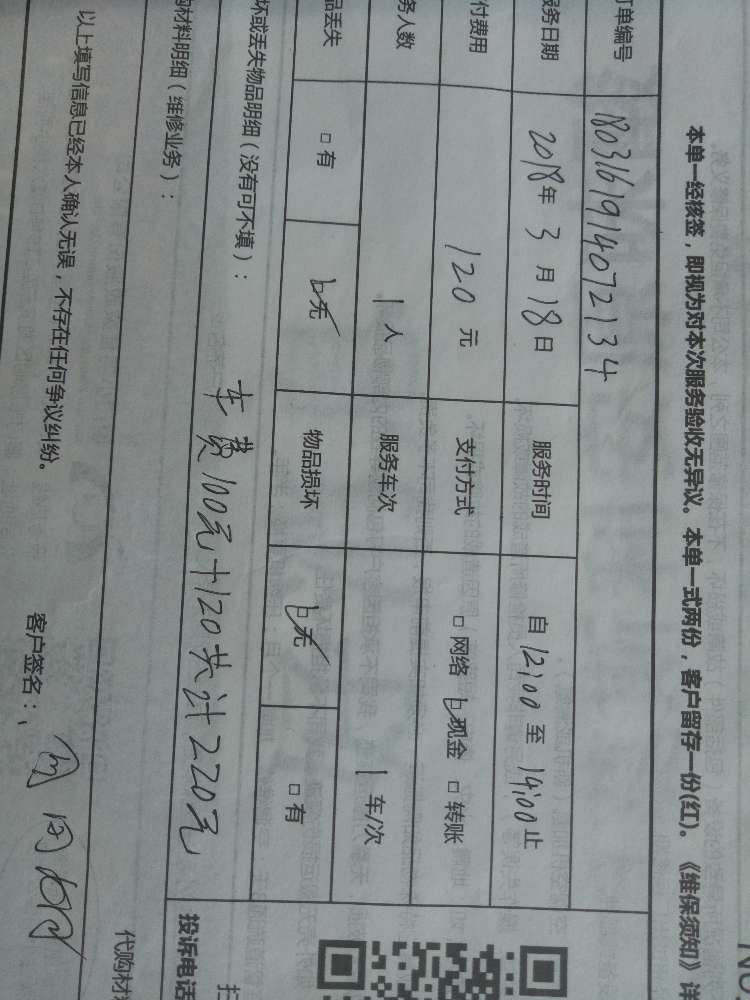 本单一经核签，即视为对本次服务验收无异议。本单一式两份，客户留存一份(红)。《维保须知》详
订单编号 1803161914072134
服务日期 2018年 3月 18日 服务时间 自 12:00 至 14:00 止
付费用 120 元 支付方式 □ 网络 ☑ 现金 □ 转账
务人数 1 人 服务车次 1 车/次
品丢失 □ 有 ☑ 无 物品损坏 ☑ 无 □ 有
坏或丢失物品明细（没有可不填）：
车费100元+120共计220元
购材料明细（维修业务）：
投诉电话
扫
代购材
以上填写信息已经本人确认无误，不存在任何争议纠纷。
客户签名：